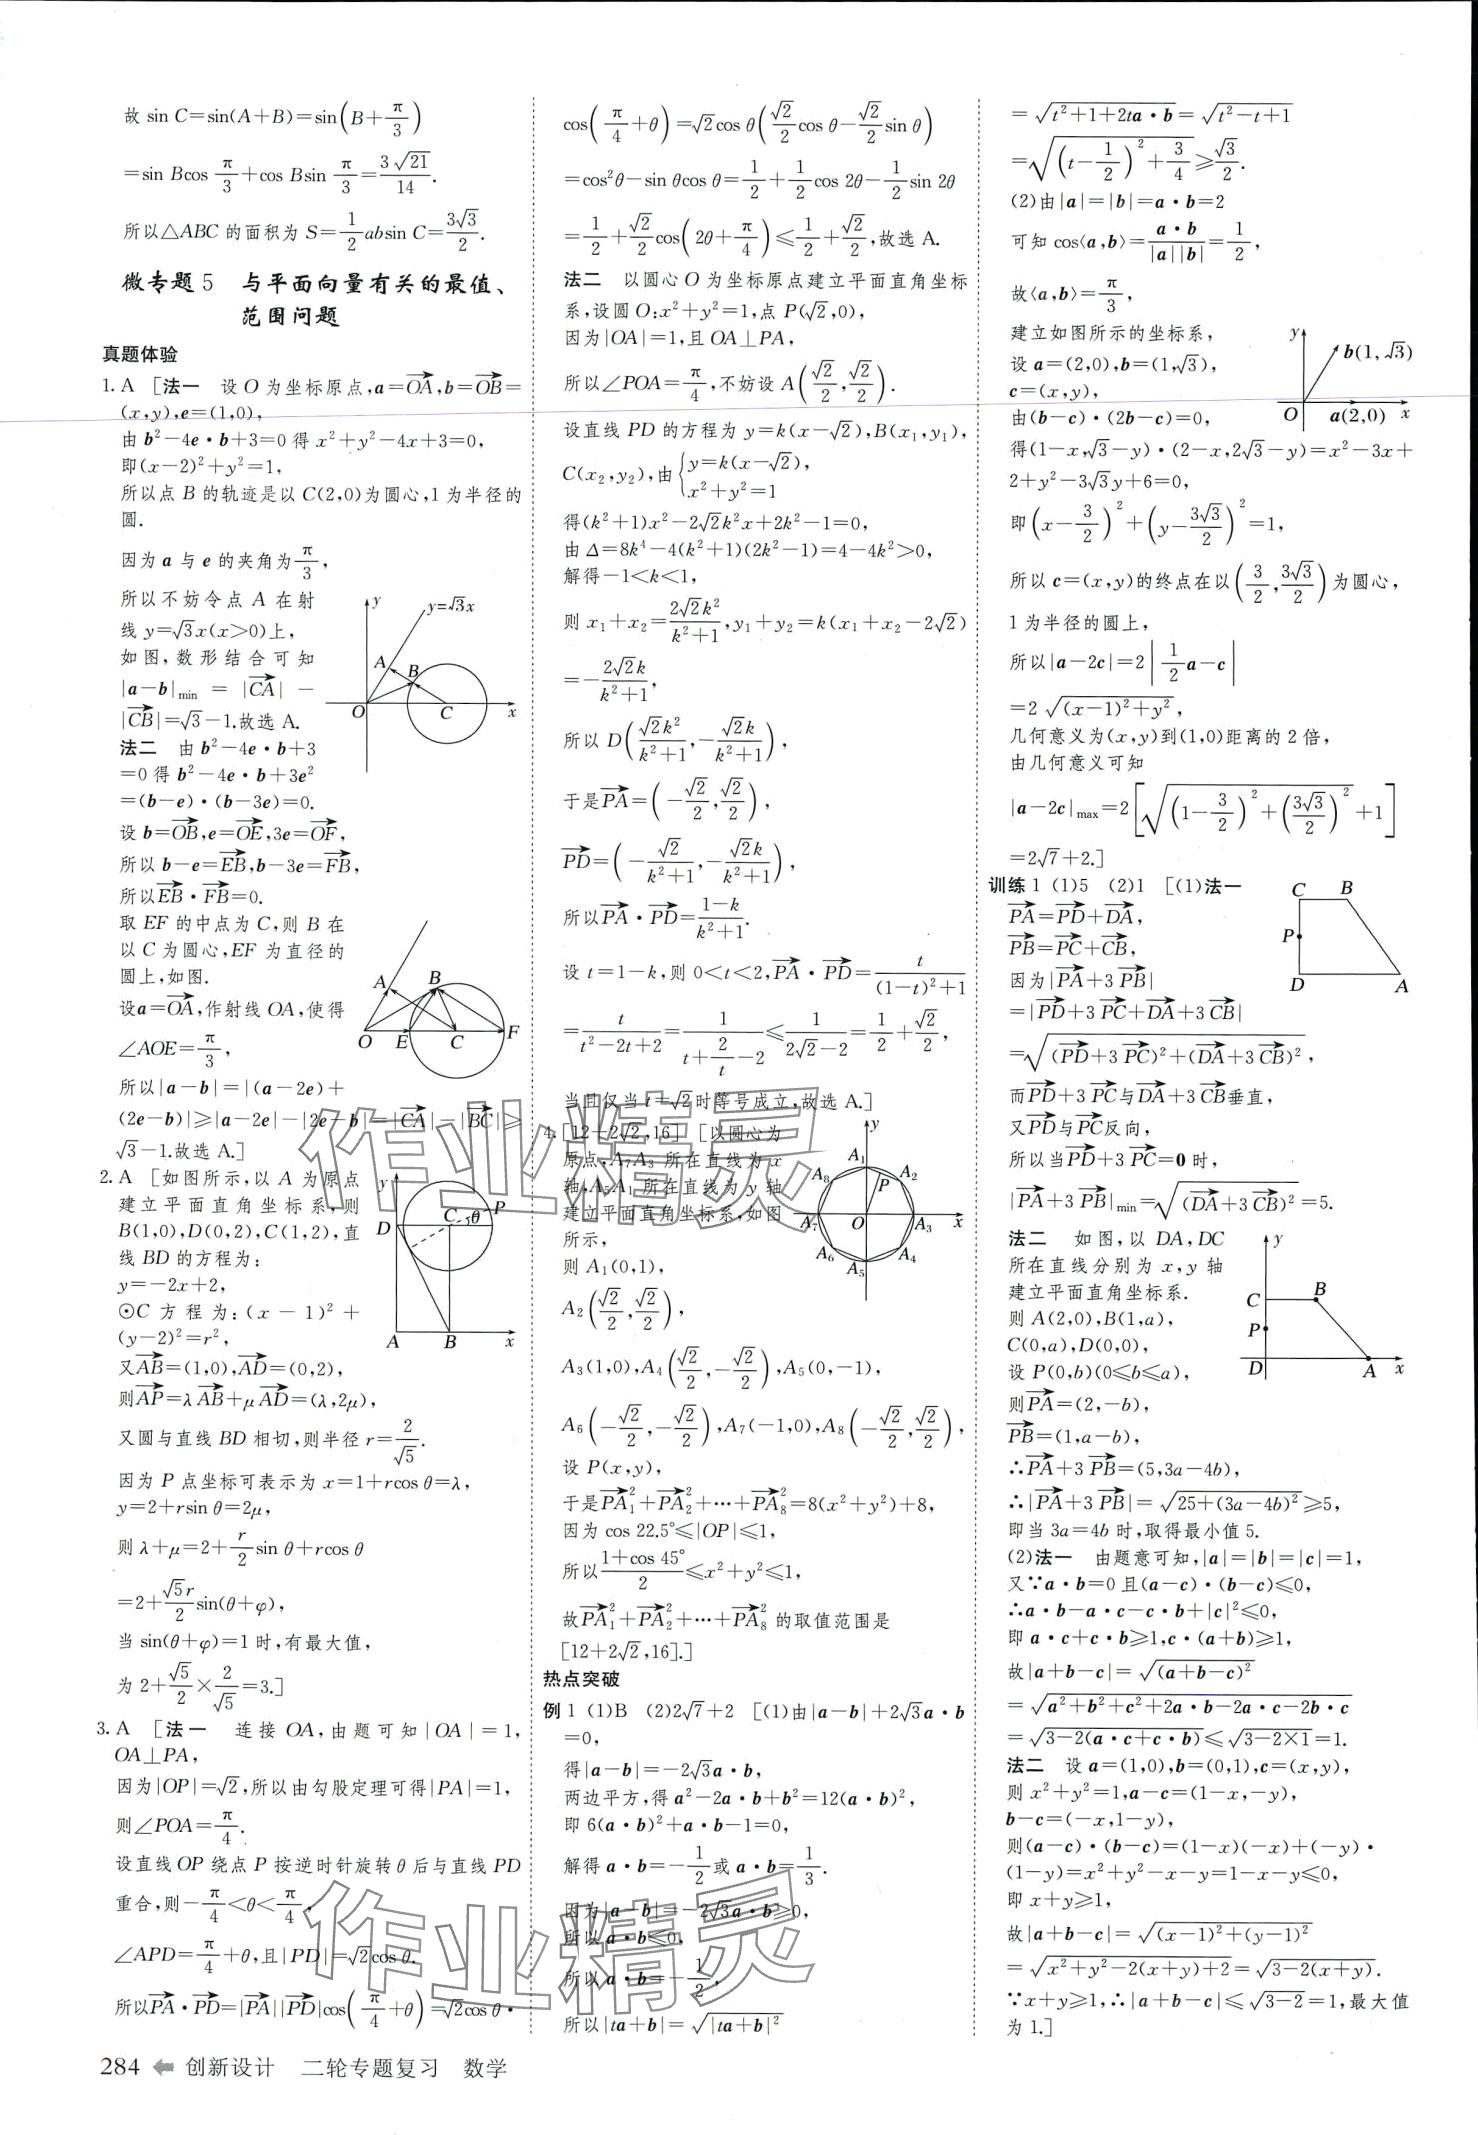 故 sin C=sin(A+B)=sin(B+π/3)
=sin Bcos π/3+cos Bsin π/3=3√21/14.
所以△ABC 的面积为 S=1/2absin C=3√3/2.
微专题 5 与平面向量有关的最值、
范围问题
真题体验
1. A [法一 设 O 为坐标原点,a=OA→,b=OB→=
(x,y),e=(1,0),
由 b²-4e·b+3=0 得 x²+y²-4x+3=0,
即(x-2)²+y²=1,
所以点 B 的轨迹是以 C(2,0)为圆心,1 为半径的
圆.
因为 a 与 e 的夹角为π/3,
所以不妨令点 A 在射
线 y=√3x(x>0)上,
如图,数形结合可知
|a-b|min = |CA→| -
|CB→|=√3-1.故选 A.
y
y=√3x
A
B
O
C
x
法二 由 b²-4e·b+3
=0 得 b²-4e·b+3e²
=(b-e)·(b-3e)=0.
设 b=OB→,e=OE→,3e=OF→,
所以 b-e=EB→,b-3e=FB→,
所以EB→·FB→=0.
取 EF 的中点为 C,则 B 在
以 C 为圆心,EF 为直径的
圆上,如图.
设a=OA→,作射线 OA,使得
∠AOE=π/3,
A
B
O E C F
所以|a-b|=|(a-2e)+
(2e-b)|≥|a-2e|-|2e-b|=|CA→|-|BC→|≥
√3-1.故选 A.]
2. A [如图所示,以 A 为原点
建立平面直角坐标系,则
B(1,0),D(0,2),C(1,2),直
线 BD 的方程为:
y=-2x+2,
⊙C 方程为:(x-1)²+
(y-2)²=r²,
y
C
P
θ
D
A
B
x
又AB→=(1,0),AD→=(0,2),
则AP→=λAB→+μAD→=(λ,2μ),
又圆与直线 BD 相切,则半径 r=2/√5.
因为 P 点坐标可表示为 x=1+rcos θ=λ,
y=2+rsin θ=2μ,
则 λ+μ=2+r/2sin θ+rcos θ
=2+√5r/2sin(θ+φ),
当 sin(θ+φ)=1 时,有最大值,
为 2+√5/2×2/√5=3.]
3. A [法一 连接 OA,由题可知|OA|=1,
OA⊥PA,
因为|OP|=√2,所以由勾股定理可得|PA|=1,
则∠POA=π/4.
设直线 OP 绕点 P 按逆时针旋转 θ 后与直线 PD
重合,则-π/4<θ<π/4,
∠APD=π/4+θ,且|PD|=√2cos θ.
所以PA→·PD→=|PA→||PD→|cos(π/4+θ)=√2cos θ·
cos(π/4+θ)=√2cos θ(√2/2cos θ-√2/2sin θ)
=cos²θ-sin θcos θ=1/2+1/2cos 2θ-1/2sin 2θ
=1/2+√2/2cos(2θ+π/4)≤1/2+√2/2,故选 A.
法二 以圆心 O 为坐标原点建立平面直角坐标
系,设圆 O:x²+y²=1,点 P(√2,0),
因为|OA|=1,且 OA⊥PA,
所以∠POA=π/4,不妨设 A(√2/2,√2/2).
设直线 PD 的方程为 y=k(x-√2),B(x₁,y₁),
C(x₂,y₂),由{y=k(x-√2),
x²+y²=1
得(k²+1)x²-2√2k²x+2k²-1=0,
由 Δ=8k⁴-4(k²+1)(2k²-1)=4-4k²>0,
解得-1<k<1,
则 x₁+x₂=2√2k²/(k²+1),y₁+y₂=k(x₁+x₂-2√2)
=-2√2k/(k²+1),
所以 D(√2k²/(k²+1),-√2k/(k²+1)),
于是PA→=(-√2/2,√2/2),
PD→=(-√2/(k²+1),-√2k/(k²+1)),
所以PA→·PD→=(1-k)/(k²+1).
设 t=1-k,则 0<t<2,PA→·PD→=t/((1-t)²+1)
=t/(t²-2t+2)=1/(t+2/t-2)≤1/(2√2-2)=1/2+√2/2,
当且仅当 t=√2时等号成立,故选 A.]
4. [12+2√2,16] [以圆心为
原点,A₇A₃ 所在直线为 x
轴,A₅A₁ 所在直线为 y 轴
建立平面直角坐标系,如图
所示,
则 A₁(0,1),
A₂(√2/2,√2/2),
y
A₁
A₂
A₈
P
A₇
O
A₃
x
A₆
A₄
A₅
A₃(1,0),A₄(√2/2,-√2/2),A₅(0,-1),
A₆(-√2/2,-√2/2),A₇(-1,0),A₈(-√2/2,√2/2),
设 P(x,y),
于是PA₁→²+PA₂→²+…+PA₈→²=8(x²+y²)+8,
因为 cos 22.5°≤|OP|≤1,
所以(1+cos 45°)/2≤x²+y²≤1,
故PA₁→²+PA₂→²+…+PA₈→² 的取值范围是
[12+2√2,16].]
热点突破
例 1 (1)B (2)2√7+2 [(1)由|a-b|+2√3a·b
=0,
得|a-b|=-2√3a·b,
两边平方,得 a²-2a·b+b²=12(a·b)²,
即 6(a·b)²+a·b-1=0,
解得 a·b=-1/2或 a·b=1/3.
因为|a-b|=-2√3a·b≥0,
所以 a·b≤0,
所以 a·b=-1/2,
所以|ta+b|=√|ta+b|²
=√(t²+1+2ta·b)=√(t²-t+1)
=√((t-1/2)²+3/4)≥√3/2.
(2)由|a|=|b|=a·b=2
可知 cos⟨a,b⟩=a·b/|a||b|=1/2,
故⟨a,b⟩=π/3,
建立如图所示的坐标系,
设 a=(2,0),b=(1,√3),
c=(x,y),
由(b-c)·(2b-c)=0,
y
b(1,√3)
O
a(2,0)
x
得(1-x,√3-y)·(2-x,2√3-y)=x²-3x+
2+y²-3√3y+6=0,
即(x-3/2)²+(y-3√3/2)²=1,
所以 c=(x,y)的终点在以(3/2,3√3/2)为圆心,
1 为半径的圆上,
所以|a-2c|=2|1/2a-c|
=2√((x-1)²+y²),
几何意义为(x,y)到(1,0)距离的 2 倍,
由几何意义可知
|a-2c|max=2[√((1-3/2)²+(3√3/2)²)+1]
=2√7+2.]
训练 1 (1)5 (2)1 [(1)法一
PA→=PD→+DA→,
PB→=PC→+CB→,
因为|PA→+3PB→|
=|PD→+3PC→+DA→+3CB→|
C B
P
D A
=√((PD→+3PC→)²+(DA→+3CB→)²),
而PD→+3PC→与DA→+3CB→垂直,
又PD→与PC→反向,
所以当PD→+3PC→=0 时,
|PA→+3PB→|min=√((DA→+3CB→)²)=5.
法二 如图,以 DA,DC
所在直线分别为 x,y 轴
建立平面直角坐标系.
则 A(2,0),B(1,a),
C(0,a),D(0,0),
设 P(0,b)(0≤b≤a),
则PA→=(2,-b),
PB→=(1,a-b),
y
C
B
P
D
A
x
∴PA→+3PB→=(5,3a-4b),
∴|PA→+3PB→|=√(25+(3a-4b)²)≥5,
即当 3a=4b 时,取得最小值 5.
(2)法一 由题意可知,|a|=|b|=|c|=1,
又∵a·b=0 且(a-c)·(b-c)≤0,
∴a·b-a·c-c·b+|c|²≤0,
即 a·c+c·b≥1,c·(a+b)≥1,
故|a+b-c|=√((a+b-c)²)
=√(a²+b²+c²+2a·b-2a·c-2b·c)
=√(3-2(a·c+c·b))≤√(3-2×1)=1.
法二 设 a=(1,0),b=(0,1),c=(x,y),
则 x²+y²=1,a-c=(1-x,-y),
b-c=(-x,1-y),
则(a-c)·(b-c)=(1-x)(-x)+(-y)·
(1-y)=x²+y²-x-y=1-x-y≤0,
即 x+y≥1,
故|a+b-c|=√((x-1)²+(y-1)²)
=√(x²+y²-2(x+y)+2)=√(3-2(x+y)).
∵x+y≥1,∴|a+b-c|≤√(3-2)=1,最大值
为 1.]
作业精灵
作业精灵
284 创新设计 二轮专题复习 数学